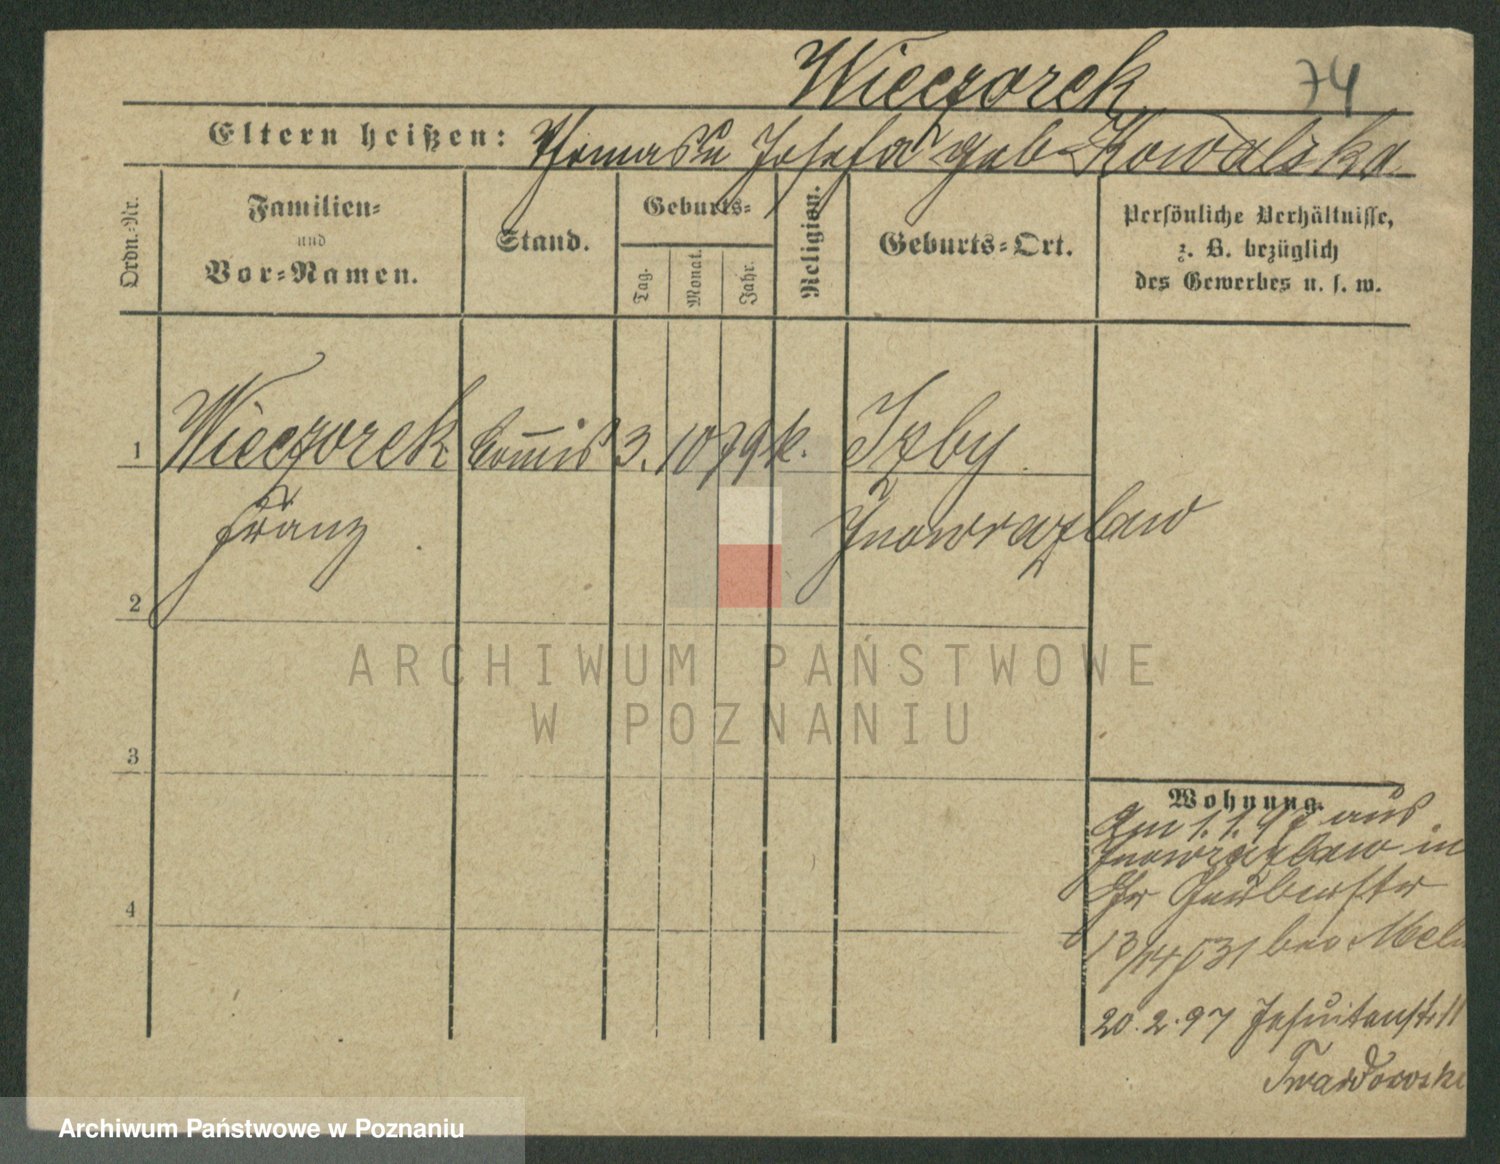 Wieczorek 74
Eltern heißen: Thomas u Josefa geb Kowalska
Ordn.-Nr.
Familien-
und
Vor-Namen.
Stand.
Geburts-
Tag.
Monat.
Jahr.
Religion.
Geburts-Ort.
Persönliche Verhältnisse,
z. B. bezüglich
des Gewerbes u. s. w.
1 Wieczorek Commis 3. 10 79 k. Izby
Franz Inowrazlaw
2
3
4
Wohnung.
Am 1.1.97 aus
Inowrazlaw in
13/14
20.2.97 Jesuitenstr 11
Twardowski
ARCHIWUM PAŃSTWOWE
W POZNANIU
Archiwum Państwowe w Poznaniu